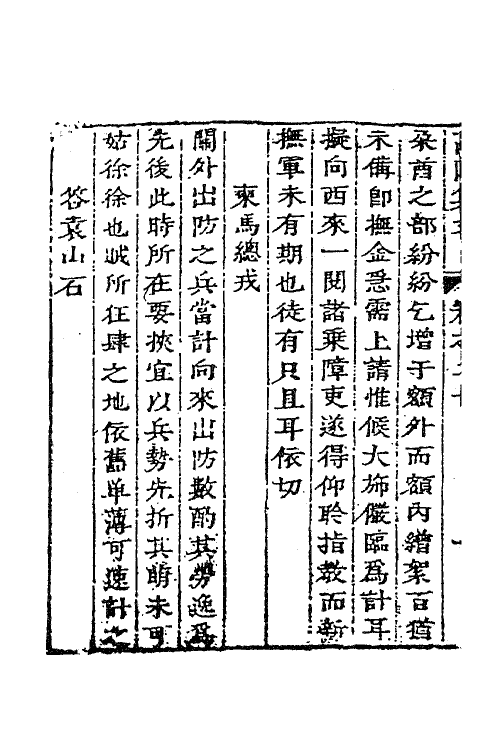 朶酋之部紛紛乞增于額外而額內繒絮百猶
未備卽撫金急需上請惟候大旆儼臨爲計耳
擬向西來一閱諸乗障吏遂得仰聆指教而新
撫軍未有期也徒有只且耳依切
柬馬總戎
關外出防之兵當計向來出防數酌其勞逸爲
先後此時所在要挾宜以兵勢先折其萌未可
姑徐徐也賊所狂肆之地依舊单薄可速計之
答袁山石